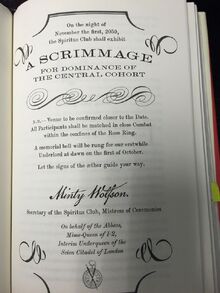 On the night of
November the first, 2059,
the Spiritus Club shall exhibit
A SCRIMMAGE
FOR DOMINANCE OF
THE CENTRAL COHORT
P.S.—Venue to be confirmed closer to the Date.
All Participants shall be matched in close Combat
within the confines of the Rose Ring.
A memorial bell will be rung for our erstwhile
Underlord at dawn on the first of October.
Let the signs of the æther guide your way.
Minty Wolfson,
Secretary of the Spiritus Club, Mistress of Ceremonies
On behalf of the Abbess,
Mime-Queen of I-2,
Interim Underqueen of the
Scion Citadel of London